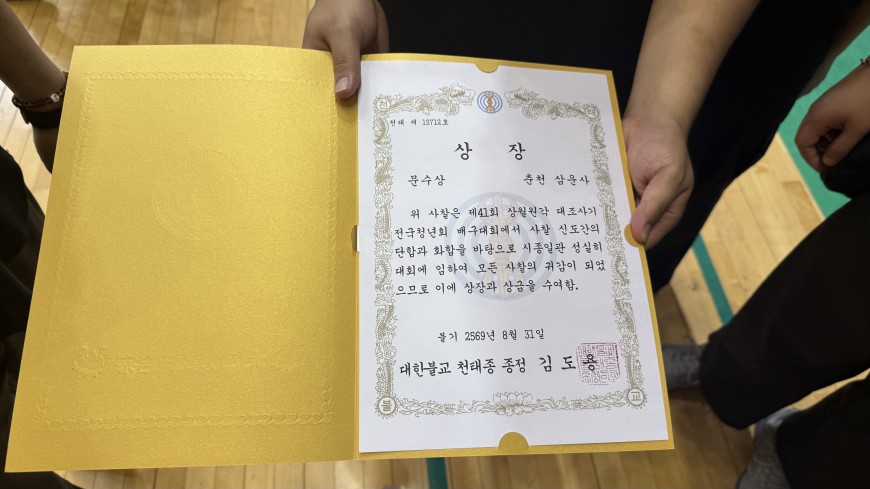 천 태
천태 제 15712호
상 장
문수상 춘천 삼운사
위 사찰은 제41회 상월원각 대조사기
전국청년회 배구대회에서 사찰 신도간의
단합과 화합을 바탕으로 시종일관 성실히
대회에 임하여 모든 사찰의 귀감이 되었
으므로 이에 상장과 상금을 수여함.
불기 2569년 8월 31일
대한불교 천태종 종정 김도용
불 교